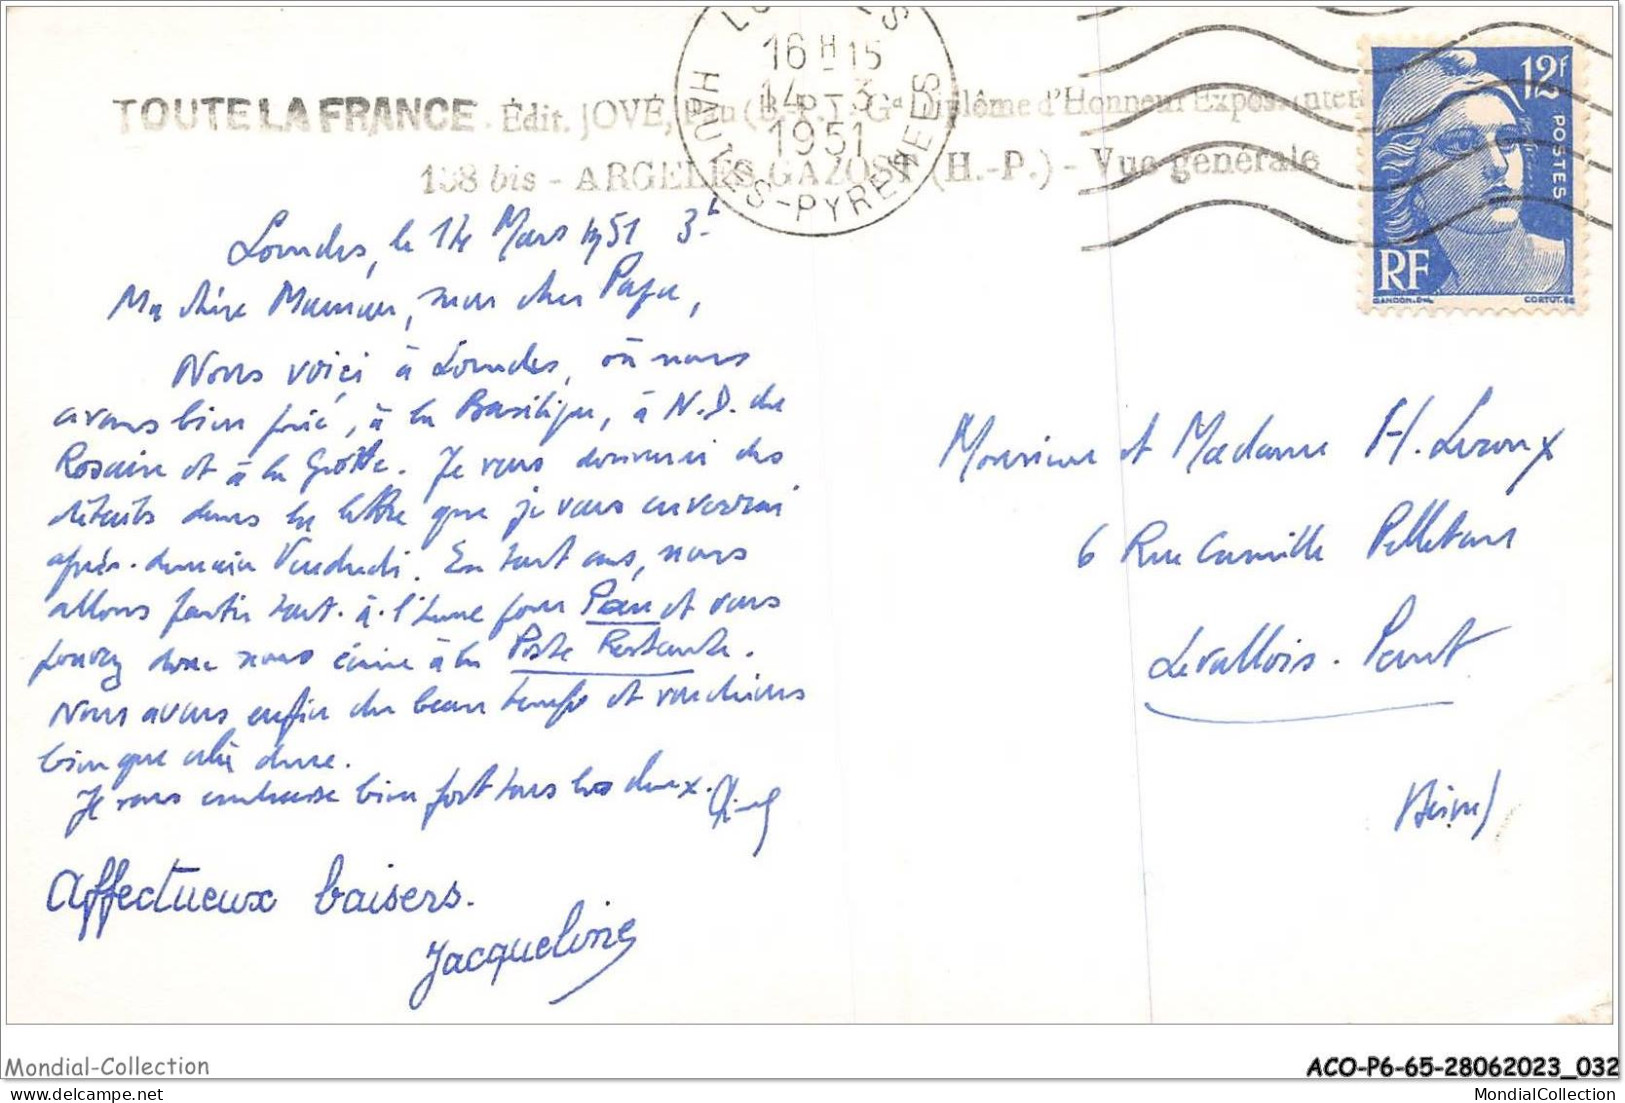 TOUTE LA FRANCE. Édit. JOVÉ, Pau (B.-P.). Gd Diplôme d'Honneur Expos. Inter
158 bis - ARGELÈS-GAZOST (H.-P.) - Vue générale
16 H 15
14 - 3
1951
HAUTES-PYRENEES
12F
POSTES
RF
GANDON.DEL
CORTOT.SC
Lourdes, le 14 Mars 1951 3h
Ma chère Maman, mon cher Papa,
Nous voici à Lourdes, où nous
avons bien prié, à la Basilique, à N.D. du
Rosaire et à la Grotte. Je vous donnerai des
détails dans la lettre que je vous enverrai
après-demain Vendredi. En tout cas, nous
allons partir tout-à-l'heure pour Pau et vous
pouvez donc nous écrire à la Poste Restante.
Nous avons enfin du beau temps et voudrions
bien que cela dure.
Je vous embrasse bien fort tous les deux.
Affectueux baisers.
Jacqueline
Monsieur et Madame H. Leroux
6 Rue Camille Pelletan
Levallois-Perret
(Seine)
Mondial-Collection
ACO-P6-65-28062023_032
MondialCollection